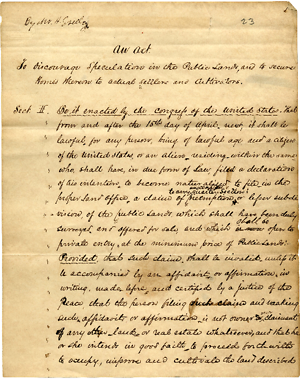 By Mr. H. Greeley
23
An Act
To discourage Speculation in the Public Lands, and to secure
Homes thereon to actual settlers and Cultivators.
Sect. I. Be it enacted by the congress of the United States, that
from and after the 15th day of April, next, it shall be
lawful, for any person, being of lawful age and a citizen
of the United States, or an alien, residing, within the same
who shall have, in due form of law, filed a declaration
of his intention, to become to file, in the
proper land office, a claim of preemption, or
of the public lands which shall have been duly
shall be
surveyed, and offered for sale, and which is now open to
private entry, at the minimum price of Public Lands:
Provided, that such claim, shall be invalid, unless it
is accompanied by an affidavit, or affirmation, in
writing, made before, and certified by a Justice of the
Peace that the person filing such claim and making
such affidavit or affirmation, is not owner or claimant
of any other land or real estate whatsoever, and that he
or she intends in good faith, to proceed forthwith
to occupy, improve and cultivate the land described